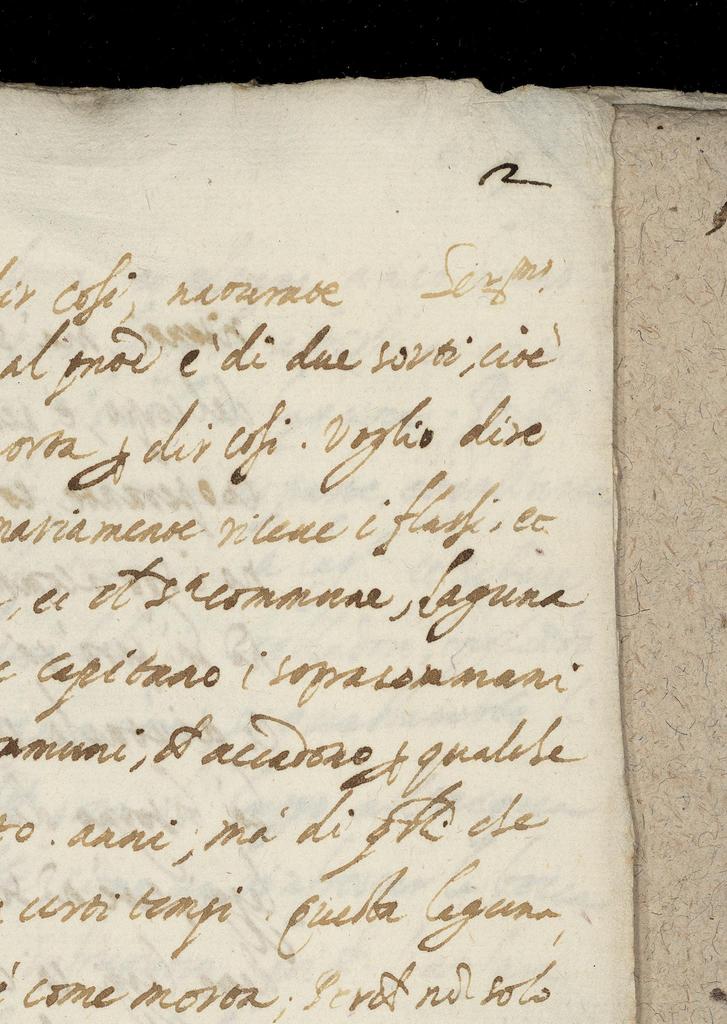 2
dir cosi, naturate Ser.mi
al pnte è di due sorti, cioè
orta p dir cosi. Voglio dire
nariamente riceue i flussi, et
, et ch' s.a commune, laguna
capitano i sopracommani
mmuni, ch' accadono p qualche
to. anni, mà di che
certi tempi questa laguna,
è come morta; Perch' nõ solo